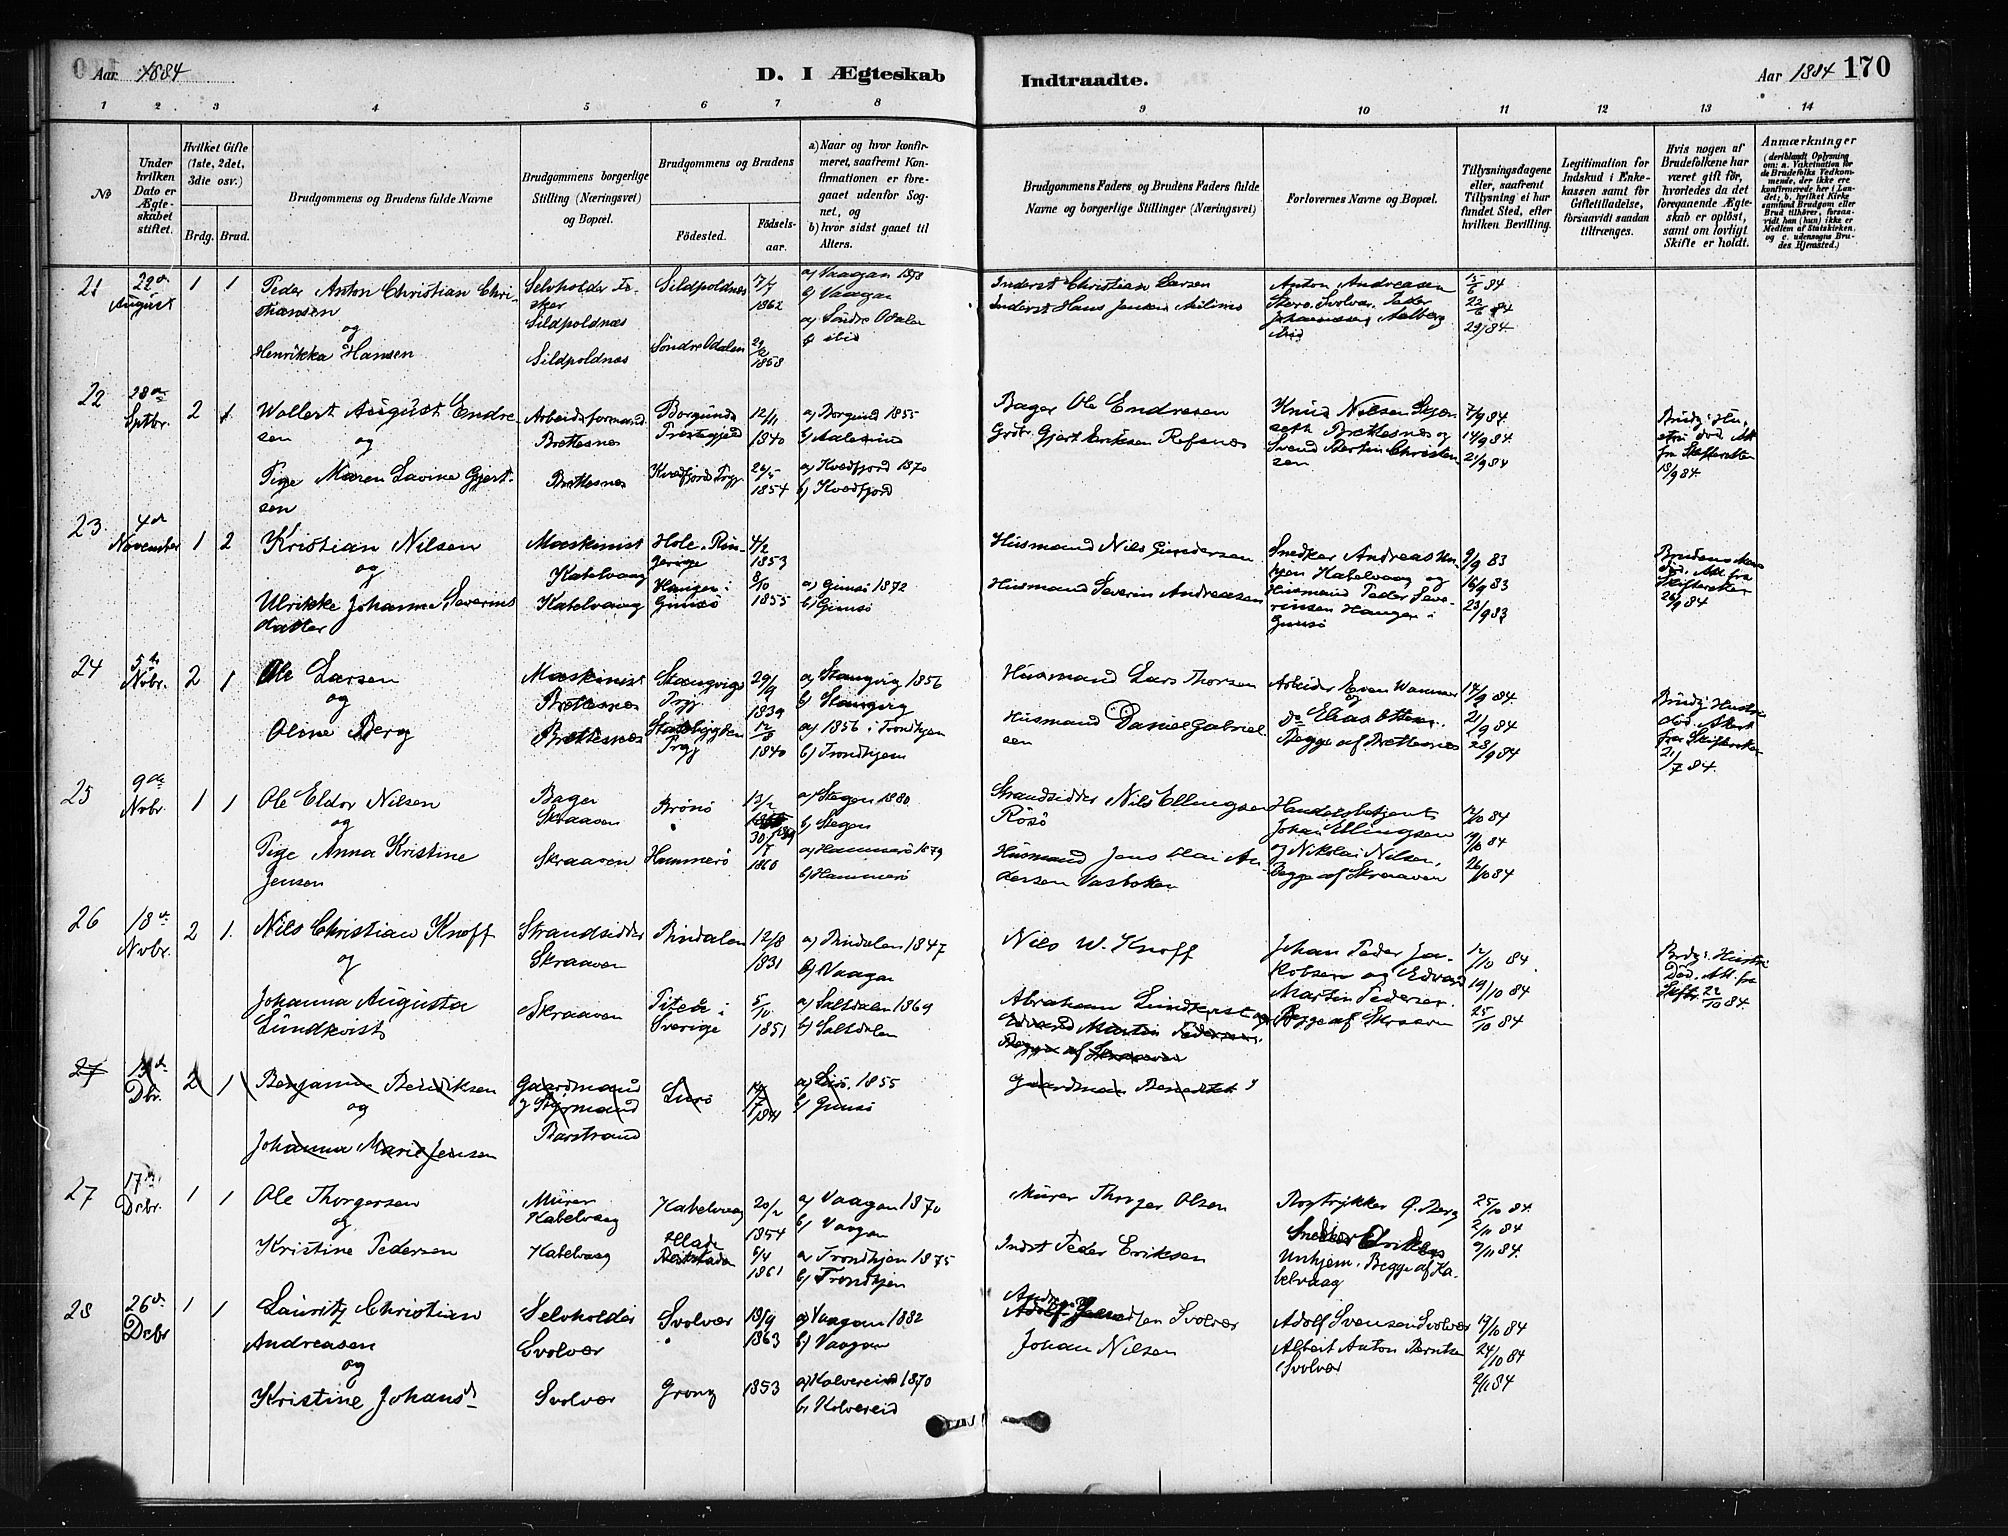 Aar 1884
D. I Ægteskab Indtraadte.
Aar 1884 170
1 2 3 4 5 6 7 8 9 10 11 12 13 14
No
Under hvilken Dato er Ægteskabet stiftet.
Hvilket Gifte (1ste, 2det, 3die osv.)
Brdg. Brud.
Brudgommens og Brudens fulde Navne
Brudgommens borgerlige Stilling (Næringsvei) og Bopæl.
Brudgommens og Brudens
Fødested. Fødselsaar.
a) Naar og hvor konfirmeret, saafremt Konfirmationen er foregaaet udenfor Sognet, og
b) hvor sidst gaaet til Alters.
Brudgommens Faders og Brudens Faders fulde Navne og borgerlige Stillinger (Næringsvei)
Forlovernes Navne og Bopæl.
Tillysningsdagene eller, saafremt Tillysning ei har fundet Sted, efter hvilken Bevilling.
Legitimation for Indskud i Enkekassen samt for Giftetilladelse, forsaavidt saadan tiltrænges.
Hvis nogen af Brudefolkene har været gift før, hvorledes da det foregaaende Ægteskab er opløst, samt om lovligt Skifte er holdt.
Anmærkninger
21 22de August 1 1
Peder Anton Christian Christiansen
og
Henrikka Hansen
Selvholder Fisker Sildpoldnæs
Sildpoldnæs
Sildpoldnæs 17/7 1862
Søndre Odalen 1858
a) Vaagan 1878
b) Vaagan
a) Søndre Odalen
b) ibid
Inderst Christian Larsen
Inderst Hans Jensen
Anton Andreasen
Svolvær Peder
Johannessen Aalberg
ibid
15/6 84
22/6 84
29/6 84
22 28de Sptbr. 2 1
Wollert August Endresen
og
Pige Maren Lavine Gjertsen
Arbeidsformand Brettesnes
Brettesnes
Borgunds Præstegjeld 12/11 1840
Kvædfjords Prgj 26/5 1854
a) Borgund 1855
b) Aalesund
a) Kvædfjord 1870
b) Kvædfjord
Bager Ole Endresen
Grdbr. Gjert Eriksen Refsnæs
Knud Nilsen
Brettesnæs og
Svend Martin Christensen
7/9 84
14/9 84
21/9 84
Brudg: Hustru død. Att. fra Skifteretten 18/9 84.
23 4de November 1 2
Kristian Nilsen
og
Ulrikke Johanna Severinsdatter
Maskinist Kabelvaag
Kabelvaag
Hole, Ringerige 4/2 1853
Haugen i Gimsø 8/10 1855
a) Gimsø 1872
b) Gimsø
Husmand Nils Gundersen
Husmand Severin Andreasen
Snedker Andreas
Kabelvaag og
Husmand Peder Severinsen Haugen i
Gimsø
9/9 83
16/9 83
23/9 83
Brudens Mand død. Att. fra Skifteretten 26/9 84
24 5te Nvbr. 2 1
Ole Larsen
og
Oline Berg
Maskinist Brettesnæs
Brettesnæs
Stangvigs Prgj 29/9 1839
Prgj 1840
a) Stangvig 1856
b) Stangvig
a) 1856 i Trondhjem
b) Trondhjem
Husmand Lars Thorsen
Husmand Daniel Gabrielsen
Arbeider Even Wammer
og
do Elias Ottesen.
Begge af Brettesnæs
14/9 84.
21/9 84
28/9 84
Brudg: Hustru død. Attest fra Skifteretten 21/7 84.
25 9de Nvbr. 1 1
Ole Eldor Nilsen
og
Pige Anna Kristine Jensen
Bager Skraaven
Skraaven
Brønø 13/2
Hammerø 30/7 1860
a) Stegen 1880
b) Stegen
a) Hammerø 1879
b) Hammerø
Strandsidder Nils Ellingsen Rösö
Husmand Jens Olai Andersen
Handelsbetjent
Johan Ellingsen
og Nikolai Nilsen,
Begge af Skraaven
12/10 84
19/10 84
26/10 84
26 18de Nvbr. 2 1.
Nils Christian Knoff
og
Johanna Augusta Lundkvist
Strandsidder Skraaven
Skraaven
Bindalen 12/8 1831
Piteå i Sverige 5/10 1851
a) Bindalen 1847
b) Vaagan
a) Saltdalen 1869
b) Saltdalen
Nils W. Knoff
Abraham Lundkvist og
Edvard Martin Pedersen.
Begge af Skraaven
Johan Peder Jakobsen og Edvard
Martin Pedersen.
Begge af Skraaven
12/10 84.
19/10 84
25/10 84
Brdg: Hustru Død. Att. fra Skiftr. 22/10 84.
27 Dbr. 2 1
Benjamin Bendiksen
og
Johanna Marie Jensen
Gaardmand
og Styrmand
Barstrand
Lurø 1841
a) 1855
b) Gimsø
Gaardman
27 17de Dcbr. 1 1
Ole Thorgersen
og
Kristine Pedersen
Murer Kabelvaag
Kabelvaag
Kabelvaag 20/2 1854
6/4 1861
a) Vaagan 1870
b) Vaagan
a) Trondhjem 1875
b) Trondhjem
Murer Thorger Olsen
Indst Peder Eriksen
Bogtrykker Berg
Snedker
Unhjem. Begge af Kabelvaag
25/10 84.
2/11 84
9/11 84.
28 26de Dcbr 1 1
Lauritz Christian
Andreasen
og
Kristine Johansd
Selvholder Svolvær
Svolvær
Svolvær 13/9 1863
Grong 1853
a) Vaagan 1882
b) Vaagan
a) Kolvereid 1870
b) Kolvereid
Svolvær
Johan Nilsen
Adolf Svensen Svolvær
Albert Anton Berntsen
Svolvær
19/10 84
24/10 84
2/11 84